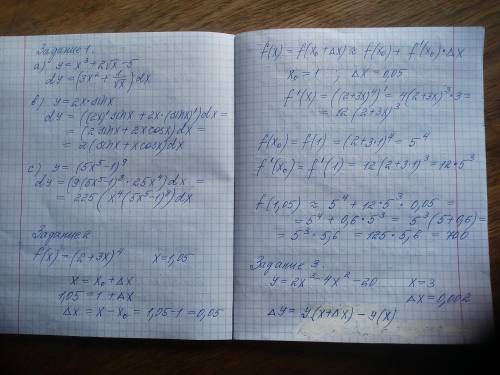 Задание 1.
а) y = x³ + 2√x - 5
dy = (3x² + 1/√x) dx
в) y = 2x · sinx
dy = ((2x)' sinx + 2x · (sinx)') dx =
= (2sinx + 2x cosx) dx =
= 2(sinx + x cosx) dx
с) y = (5x⁵-1)⁹
dy = (9(5x⁵-1)⁸ · 25x⁴) dx =
= 225 (x⁴(5x⁵-1)⁸) dx
Задание 2
f(x) - (2+3x)⁴ x = 1,05
x = x₀ + Δx
1,05 = 1 + Δx
Δx = x - x₀ = 1,05 - 1 = 0,05
f(x) = f(x₀ + Δx) ≈ f(x₀) + f'(x₀) · Δx
x₀ = 1 ; Δx = 0,05
f'(x) = ((2+3x)⁴)' = 4(2+3x)³ · 3 =
= 12 (2+3x)³
f(x₀) = f(1) = (2+3·1)⁴ = 5⁴
f'(x₀) = f'(1) = 12(2+3·1)³ = 12·5³
f(1,05) ≈ 5⁴ + 12·5³ · 0,05 =
= 5⁴ + 0,6 · 5³ = 5³(5+0,6) =
= 5³ · 5,6 = 125 · 5,6 = 700
Задание 3.
y = 2x³ - 4x² - 20 x = 3
Δx = 0,002
Δy = y(x+Δx) - y(x)